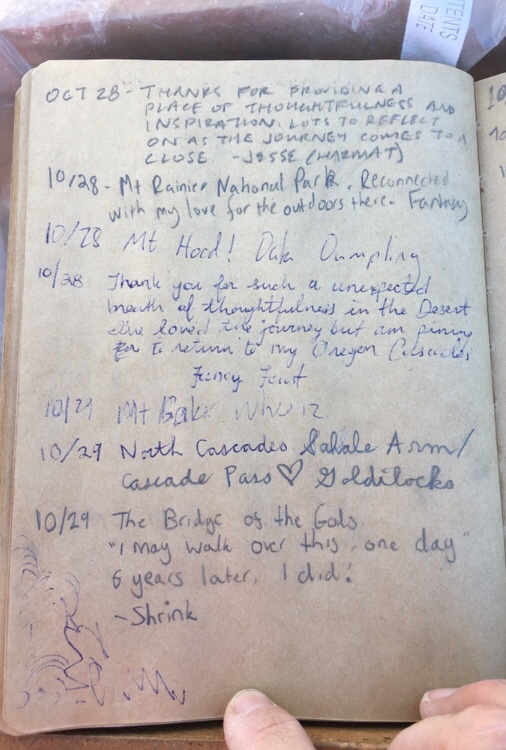 TENTS
DATE
OCT 28 - THANKS FOR PROVIDING A
PLACE OF THOUGHTFULNESS AND
INSPIRATION. LOTS TO REFLECT
ON AS THE JOURNEY COMES TO A
CLOSE. - JESSE (HAZMAT)
10/28 - Mt Rainier National Park. Reconnected
with my love for the outdoors there. Fantasy
10/28 Mt Hood! Dumpling
10/28 Thank you for such a unexpected
breath of thoughtfulness in the Desert
loved the journey but am pining
to return to my Oregon Cascades
10/29 Mt
10/29 North Cascades Sahale Arm/
Cascade Pass ♡ Goldilocks
10/29 The Bridge of the Gods.
"I may walk over this, one day"
6 years later, I did!
- Shrink